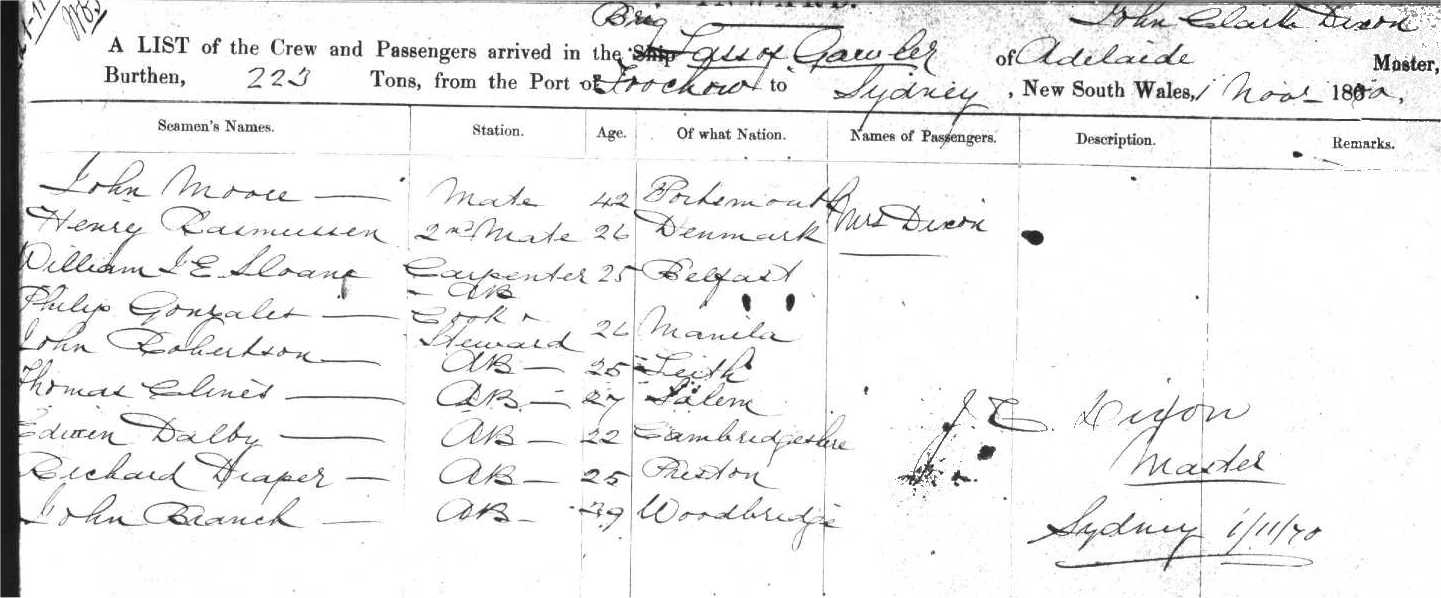 INWARD.
Brig John Clark Dixon
A LIST of the Crew and Passengers arrived in the Ship Lass of Gawler of Adelaide Master,
Burthen, 223 Tons, from the Port of Foochow to Sydney, New South Wales, 1 Novr 1870,
Seamen's Names. Station. Age. Of what Nation. Names of Passengers. Description. Remarks.
John Moore — Mate 42 Portsmouth Mrs Dixon
Henry Rasmussen 2nd Mate 26 Denmark
William J E Sloane Carpenter 25 Belfast
- AB
Philip Gonzales — Cook & Steward 26 Manila
John Robertson — AB — 25 Leith
Thomas Clines — AB — 27 Salem
Edwin Dalby — AB — 22 Cambridgeshire J. C. Dixon
Richard Draper — AB — 25 Preston Master
John Branch — AB - 39 Woodbridge
Sydney 1/11/70